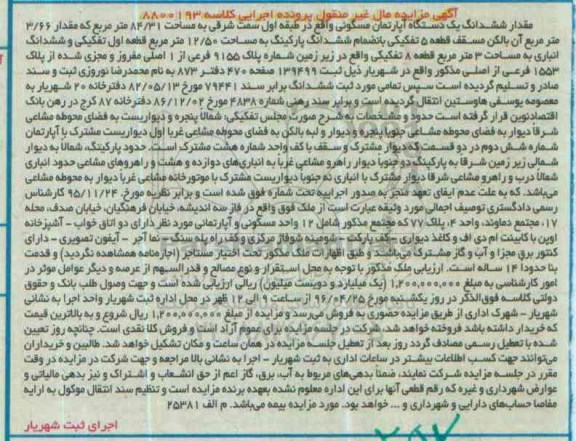 آگهی مزایده مال غیر منقول پرونده اجرایی کلاسه ۸۸۰۰۱۹۳
مقدار ششدانگ یک دستگاه آپارتمان مسکونی واقع در طبقه اول سمت شرقی به مساحت ۸۴/۳۱ متر مربع که مقدار ۳/۶۶
متر مربع آن بالکن مسقف قطعه ۵ تفکیکی بانضمام ششدانگ پارکینگ به مساحت ۱۲/۵۰ متر مربع قطعه اول تفکیکی و ششدانگ
انباری به مساحت ۳ متر مربع قطعه ۸ تفکیکی واقع در زیر زمین شماره پلاک ۹۱۵۵ فرعی از ۱ اصلی مفروز و مجزی شده از پلاک
۱۵۵۳ فرعی از اصلی مذکور واقع در شهریار ذیل ثبت ۱۳۹۴۹۹ صفحه ۴۷۰ دفتر ۸۷۳ به نام محمدرضا نوروزی ثبت و سند
صادر و تسلیم گردیده است سپس تمامی مورد ثبت ششدانگ برابر سند ۷۹۴۴۱ مورخ ۸۲/۰۵/۱۳ دفترخانه ۲۰ شهریار به
معصومه یوسفی هاوستین انتقال گردیده است و برابر سند رهنی شماره ۴۸۳۸ مورخ ۸۶/۱۲/۰۲ دفترخانه ۸۷ کرج در رهن بانک
اقتصادنوین قرار گرفته است حدود و مشخصات به شرح صورت مجلس تفکیکی: شمالا پنجره و دیواریست به فضای محوطه مشاعی
شرقا دیوار به فضای محوطه مشاعی جنوبا پنجره و دیوار و لبه بالکن به فضای محوطه مشاعی غربا اول دیواریست مشترک با آپارتمان
شماره شش دوم در دو قسمت که دیوار مشترک و سقف با کف واحد شماره هشت مشترک است. حدود پارکینگ: شمالا به دیوار
شمالی زیر زمین شرقا به پارکینگ دو جنوبا دیوار راهرو مشاعی غربا به انباری‌های دوازده و هشت و راهروهای مشاعی حدود انباری
شمالا درب و راهرو مشاعی شرقا دیوار مشترک با انباری نه جنوبا دیواریست مشترک با موتورخانه مشاعی غربا دیوار به محوطه مشاعی
میباشد. که به علت عدم ایفای تعهد منجر به صدور اجراییه تحت شماره فوق شده است و برابر نظریه مورخ. ۹۵/۱۱/۲۴ کارشناس
رسمی دادگستری توصیف اجمالی مورد وثیقه عبارت است از ملک فوق واقع در فاز سه اندیشه، خیابان فرهنگیان، خیابان صدف، محله
۱۷، مجتمع دماوند، واحد ۴، پلاک ۷۷ که مجتمع مذکور شامل ۱۲ واحد مسکونی و آپارتمانی مورد نظر دارای دو اتاق خواب - آشپزخانه
اوپن با کابینت ام دی اف و کاغذ دیواری - کف پارکت - شومینه شوفاژ مرکزی و کف راه پله سنگ - نما آجر - آیفون تصویری - دارای
کنتور برق مجزا و آب و گاز مشترک می‌باشند و طبق اظهارات ملک مذکور تحت اختیار مستاجر (اجارنامه همشاهده نگردید) و قدمت
بنا حدودا ۱۴ ساله است. ارزیابی ملک مذکور با توجه به محل استقرار و نوع مصالح و قدرالسهم از عرصه و دیگر عوامل موثر در
امور کارشناسی به مبلغ ۱,۲۰۰,۰۰۰,۰۰۰ (یک میلیارد و دویست میلیون) ریالی ارزیابی شده است و جهت وصول طلب بانک و حقوق
دولتی کلاسه فوق‌الذکر در روز یکشنبه مورخ ۹۶/۰۴/۲۵ از ساعت ۹ الی ۱۲ ظهر در محل اداره ثبت شهریار واحد اجرا به نشانی
شهریار - شهرک اداری از طریق مزایده حضوری به فروش می‌رسد و مزایده از مبلغ ۱,۲۰۰,۰۰۰,۰۰۰ ریال شروع و به بالاترین قیمت
که خریدار داشته باشد فروخته خواهد شد، شرکت در جلسه مزایده برای عموم آزاد است و فروش کلا نقدی است. چنانچه روز تعیین
شده با تعطیل رسمی مصادف گردد روز بعد از تعطیل جلسه مزایده در همان ساعت و مکان تشکیل خواهد شد. طالبین و خریداران
می‌توانند جهت کسب اطلاعات بیشتر در ساعات اداری به ثبت شهریار - اجرا به نشانی بالا مراجعه و جهت شرکت در مزایده در وقت
مقرر در جلسه مزایده شرکت نمایند، ضمنا بدهی‌های مربوط به آب، برق، گاز اعم از حق انشعاب و اشتراک و نیز بدهی مالیاتی و
عوارض شهرداری و غیره که رقم قطعی آنها برای این اداره معلوم نشده بعهده برنده مزایده است و تنظیم سند انتقال موکول به ارایه
مفاصا حساب‌های دارایی و شهرداری و ... خواهد بود. مورد مزایده بیمه می‌باشد. م الف ۲۵۳۸۱
اجرای ثبت شهریار